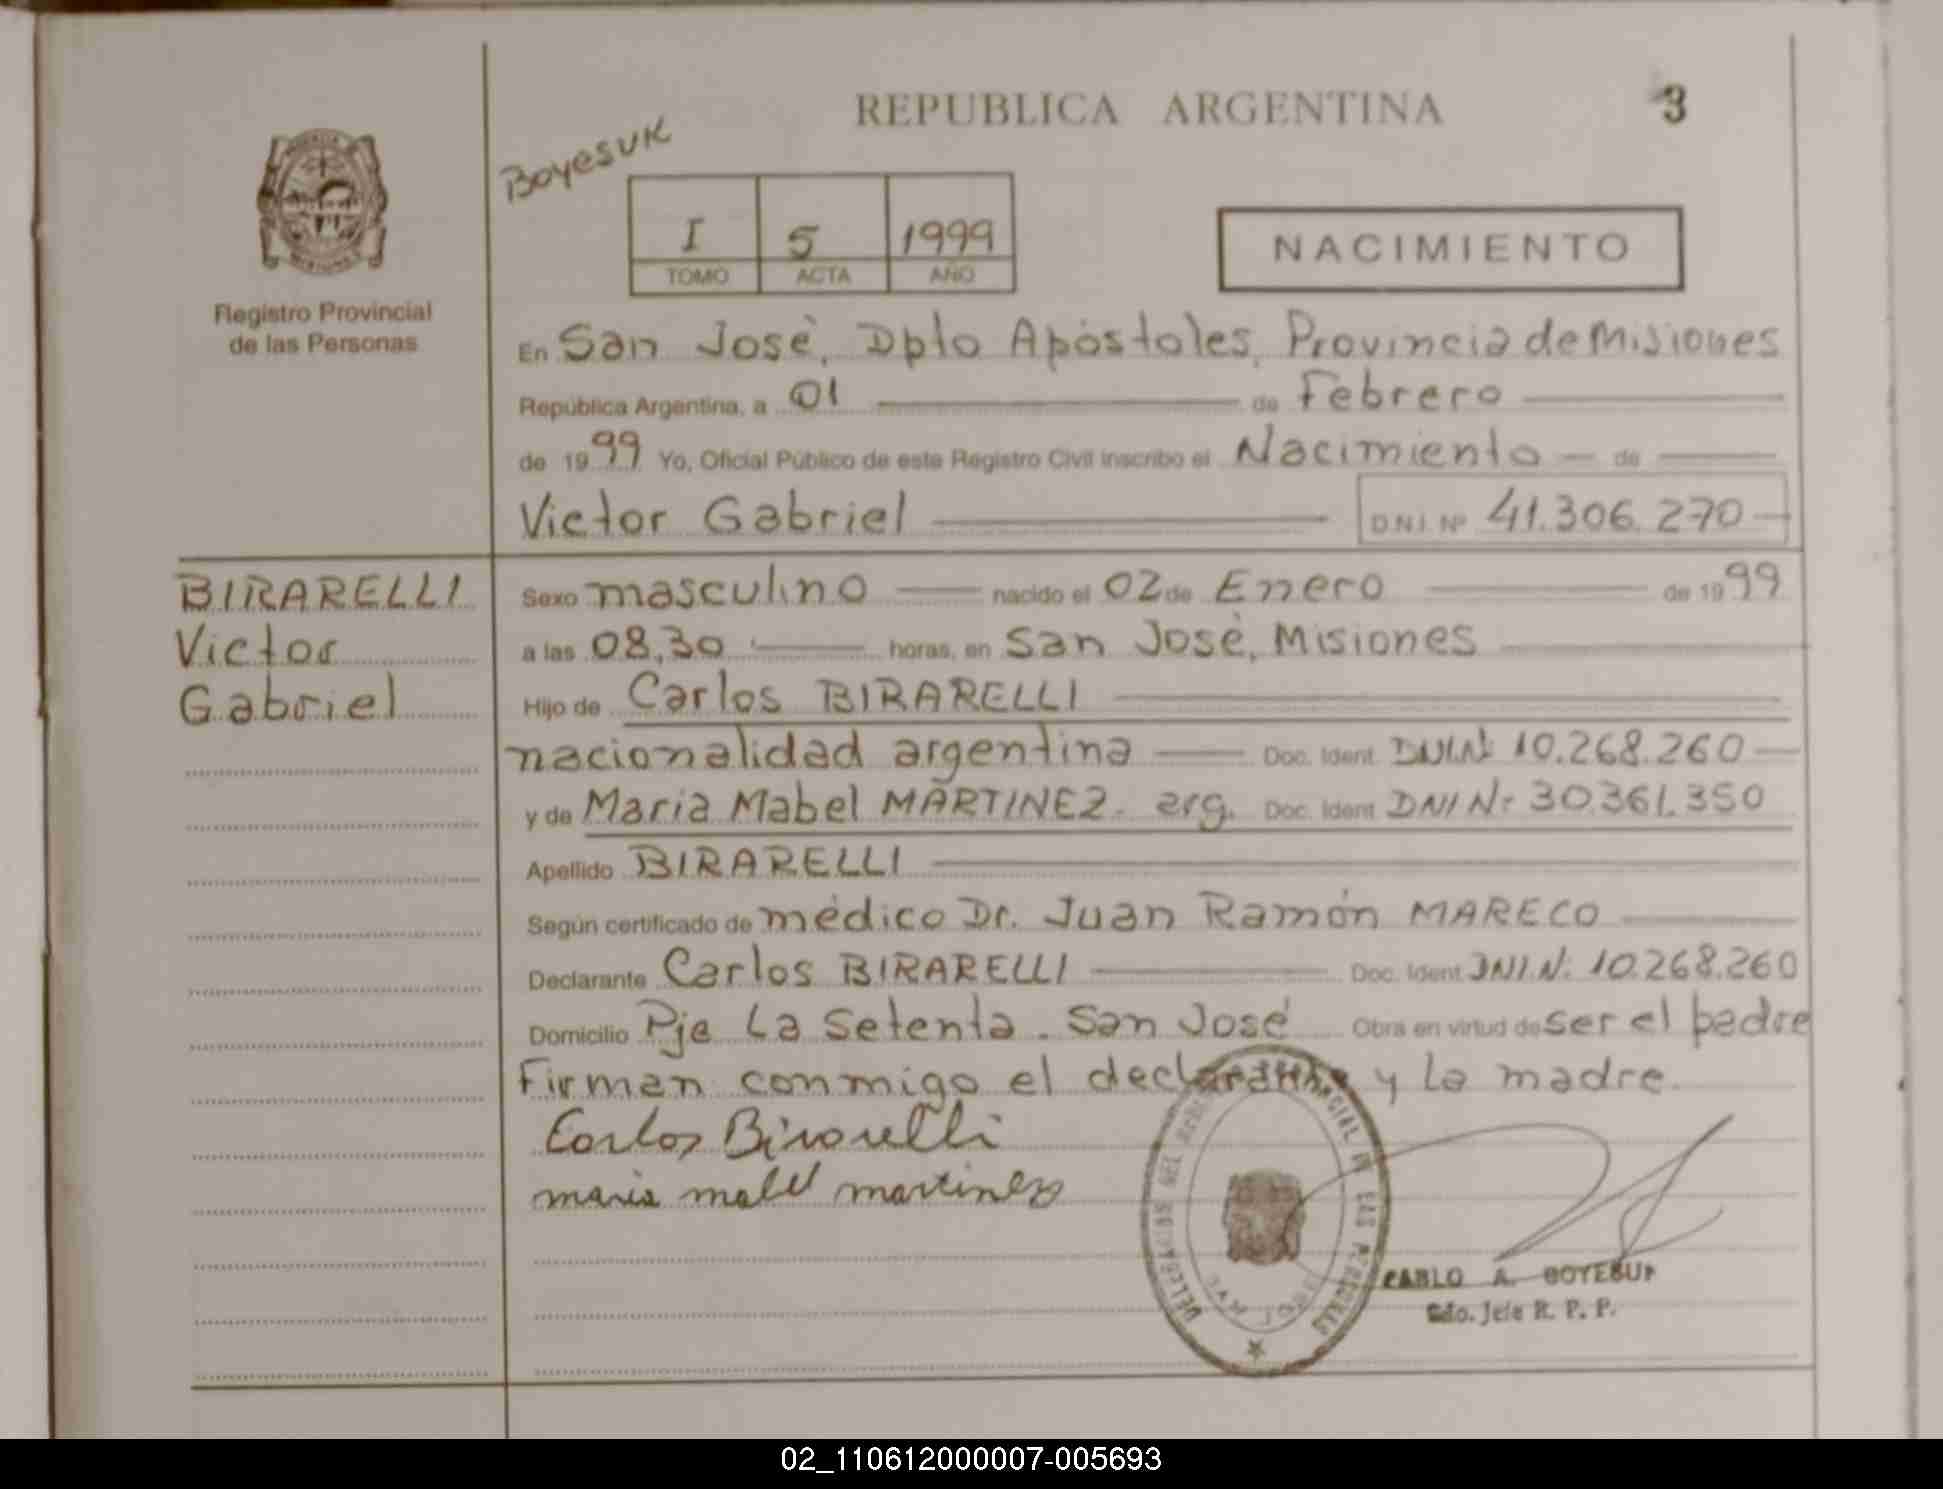 REPUBLICA ARGENTINA
3
Boyesuk
I 5 1999
TOMO ACTA AÑO
NACIMIENTO
MISIONES
Registro Provincial
de las Personas
En San José, Dpto Apóstoles, Provincia de Misiones
República Argentina, a 01 de Febrero
de 1999 Yo, Oficial Público de este Registro Civil inscribo el Nacimiento de
Victor Gabriel D.N.I. Nº 41.306.270
BIRARELLI
Victor
Gabriel
Sexo masculino nacido el 02 de Enero de 1999
a las 08,30 horas, en San José, Misiones
Hijo de Carlos BIRARELLI
nacionalidad argentina Doc. Ident. DNI.Nº 10.268.260
y de Maria Mabel MARTINEZ. arg. Doc. Ident DNI Nº 30.361.350
Apellido BIRARELLI
Según certificado de médico Dr. Juan Ramón MARECO
Declarante Carlos BIRARELLI Doc. Ident DNI.N: 10.268.260
Domicilio Pje La Setenta. San José Obra en virtud de ser el padre
Firman conmigo el declarante y la madre.
Carlos Birarelli
maria mabel martinez
SAN JOSE
PABLO A. BOYESUK
2do. Jefe R. P. P.
02_110612000007-005693